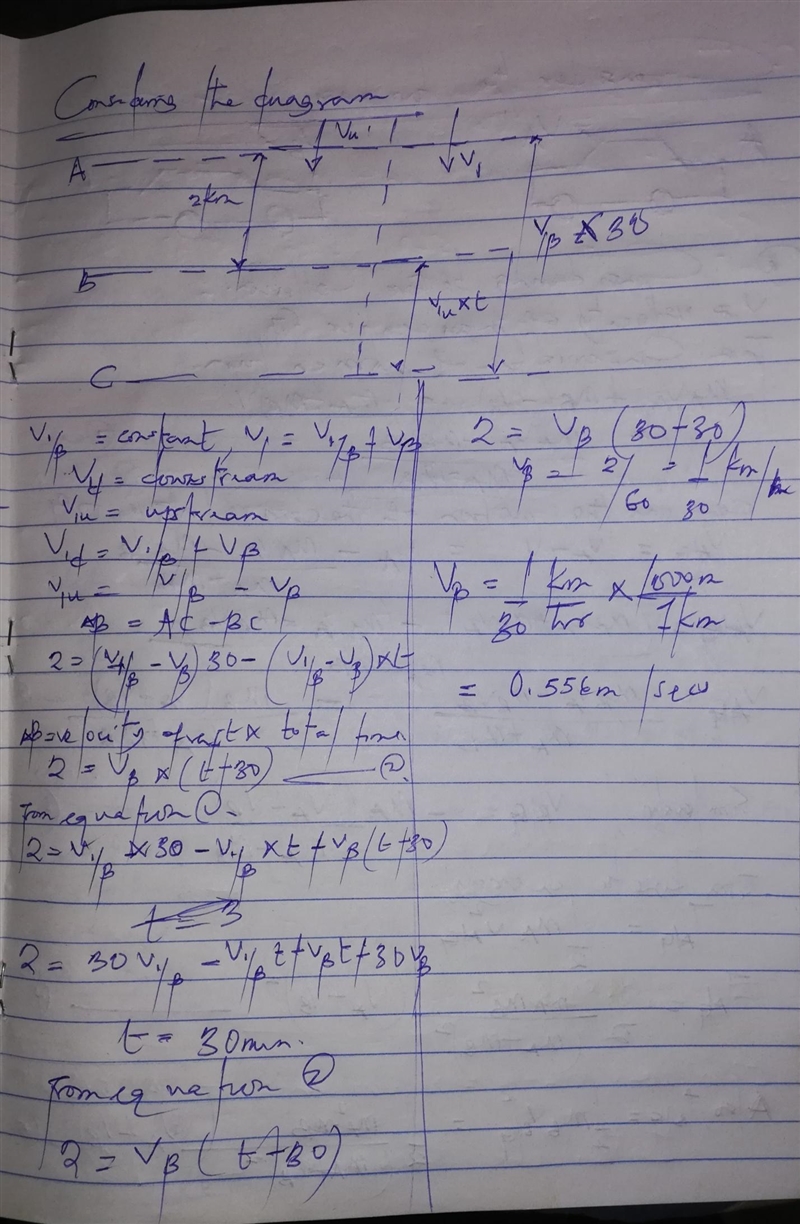 Considering the diagram
Vu
A
V1
2km
VB × 30
B
V1u × t
C
V1/B = constant, V1 = V1/B + VB
Vd = downstream
V1u = upstream
V1d = V1/B + VB
V1u = V1/B - VB
AB = AC - BC
2 = (V1/B - VB) 30 - (V1/B - VB) × t
AB = velocity of raft × total time.
2 = VB × (t + 30) ②.
From equation ①.
2 = V1/B × 30 - V1/B × t + VB (t + 30)
t = 3
2 = 30 V1/B - V1/B t + VB t + 30 VB
t = 30min.
From equation ②
2 = VB (t + 30)
2 = VB (30 + 30)
VB = 2/60 = 1/30 km/
VB = 1/30 km/hr × 1000m/1km
= 0.55km/secs